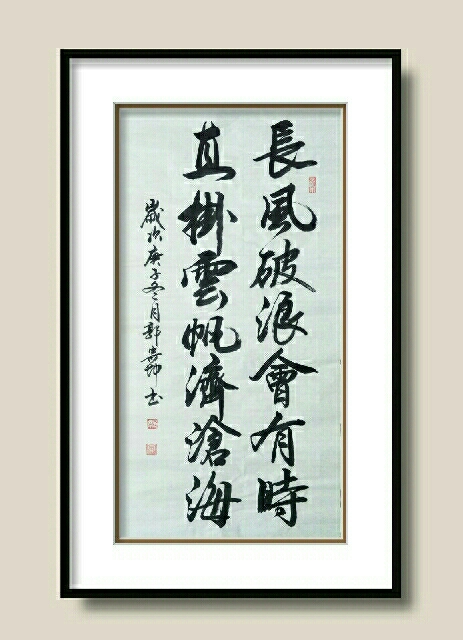 長風破浪會有時
直掛雲帆濟滄海
歲次庚子冬月郭書